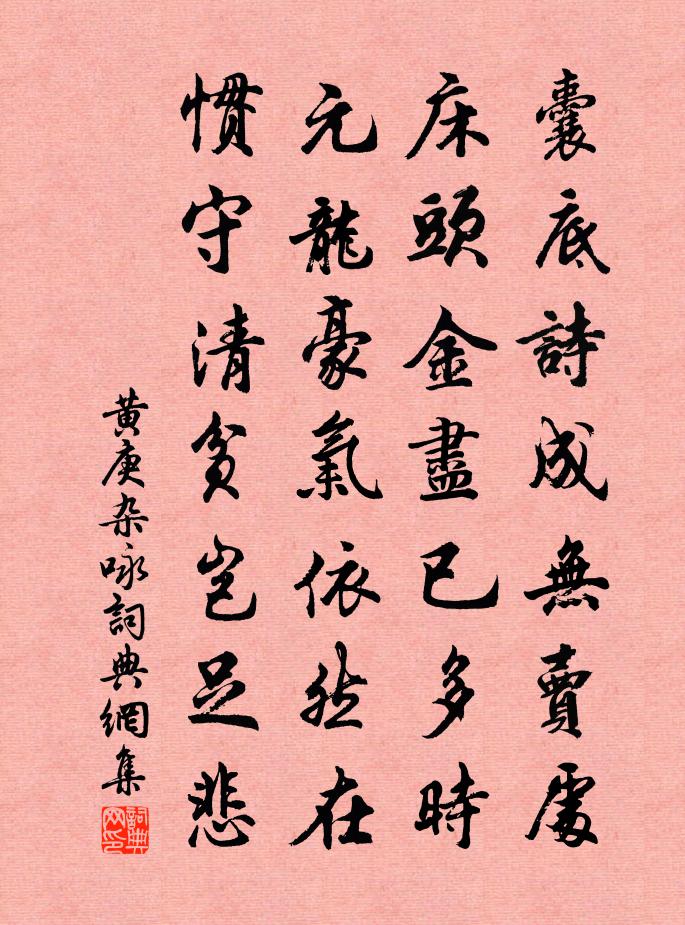 囊底詩成無賣處
床頭金盡已多時
元龍豪氣依然在
慣守清貧豈足悲
黄庚杂咏詞典網集
詞典网印